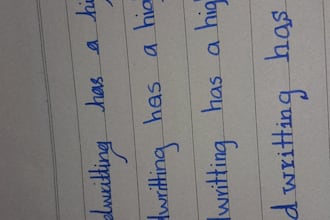 dwritting has a hi
dwritting has a hig
dwritting has a hig
d writting has